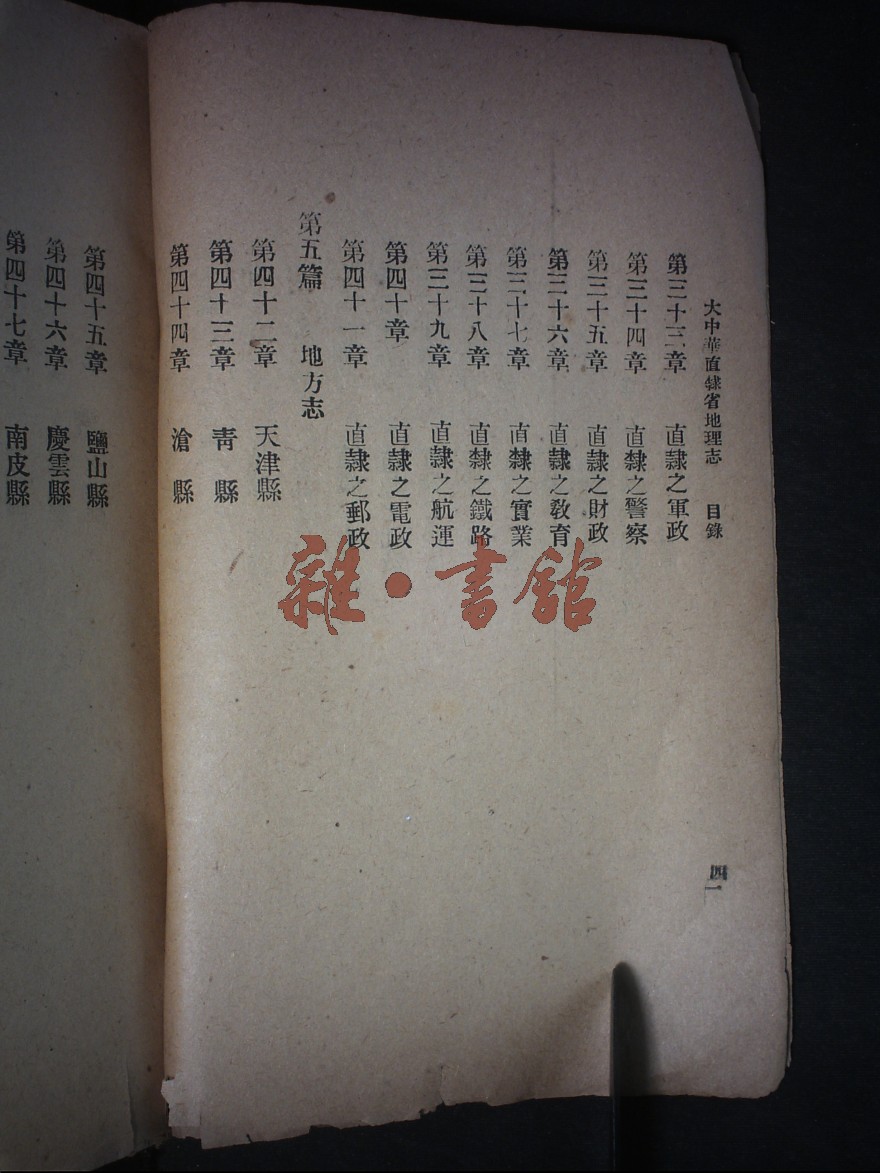 大中華直隸省地理志 目錄
第三十三章 直隸之軍政
第三十四章 直隸之警察
第三十五章 直隸之財政
第三十六章 直隸之教育
第三十七章 直隸之實業
第三十八章 直隸之鐵路
第三十九章 直隸之航運
第四十章 直隸之電政
第四十一章 直隸之郵政
第五篇 地方志
第四十二章 天津縣
第四十三章 靑縣
第四十四章 滄縣
第四十五章 鹽山縣
第四十六章 慶雲縣
第四十七章 南皮縣
雜·書館